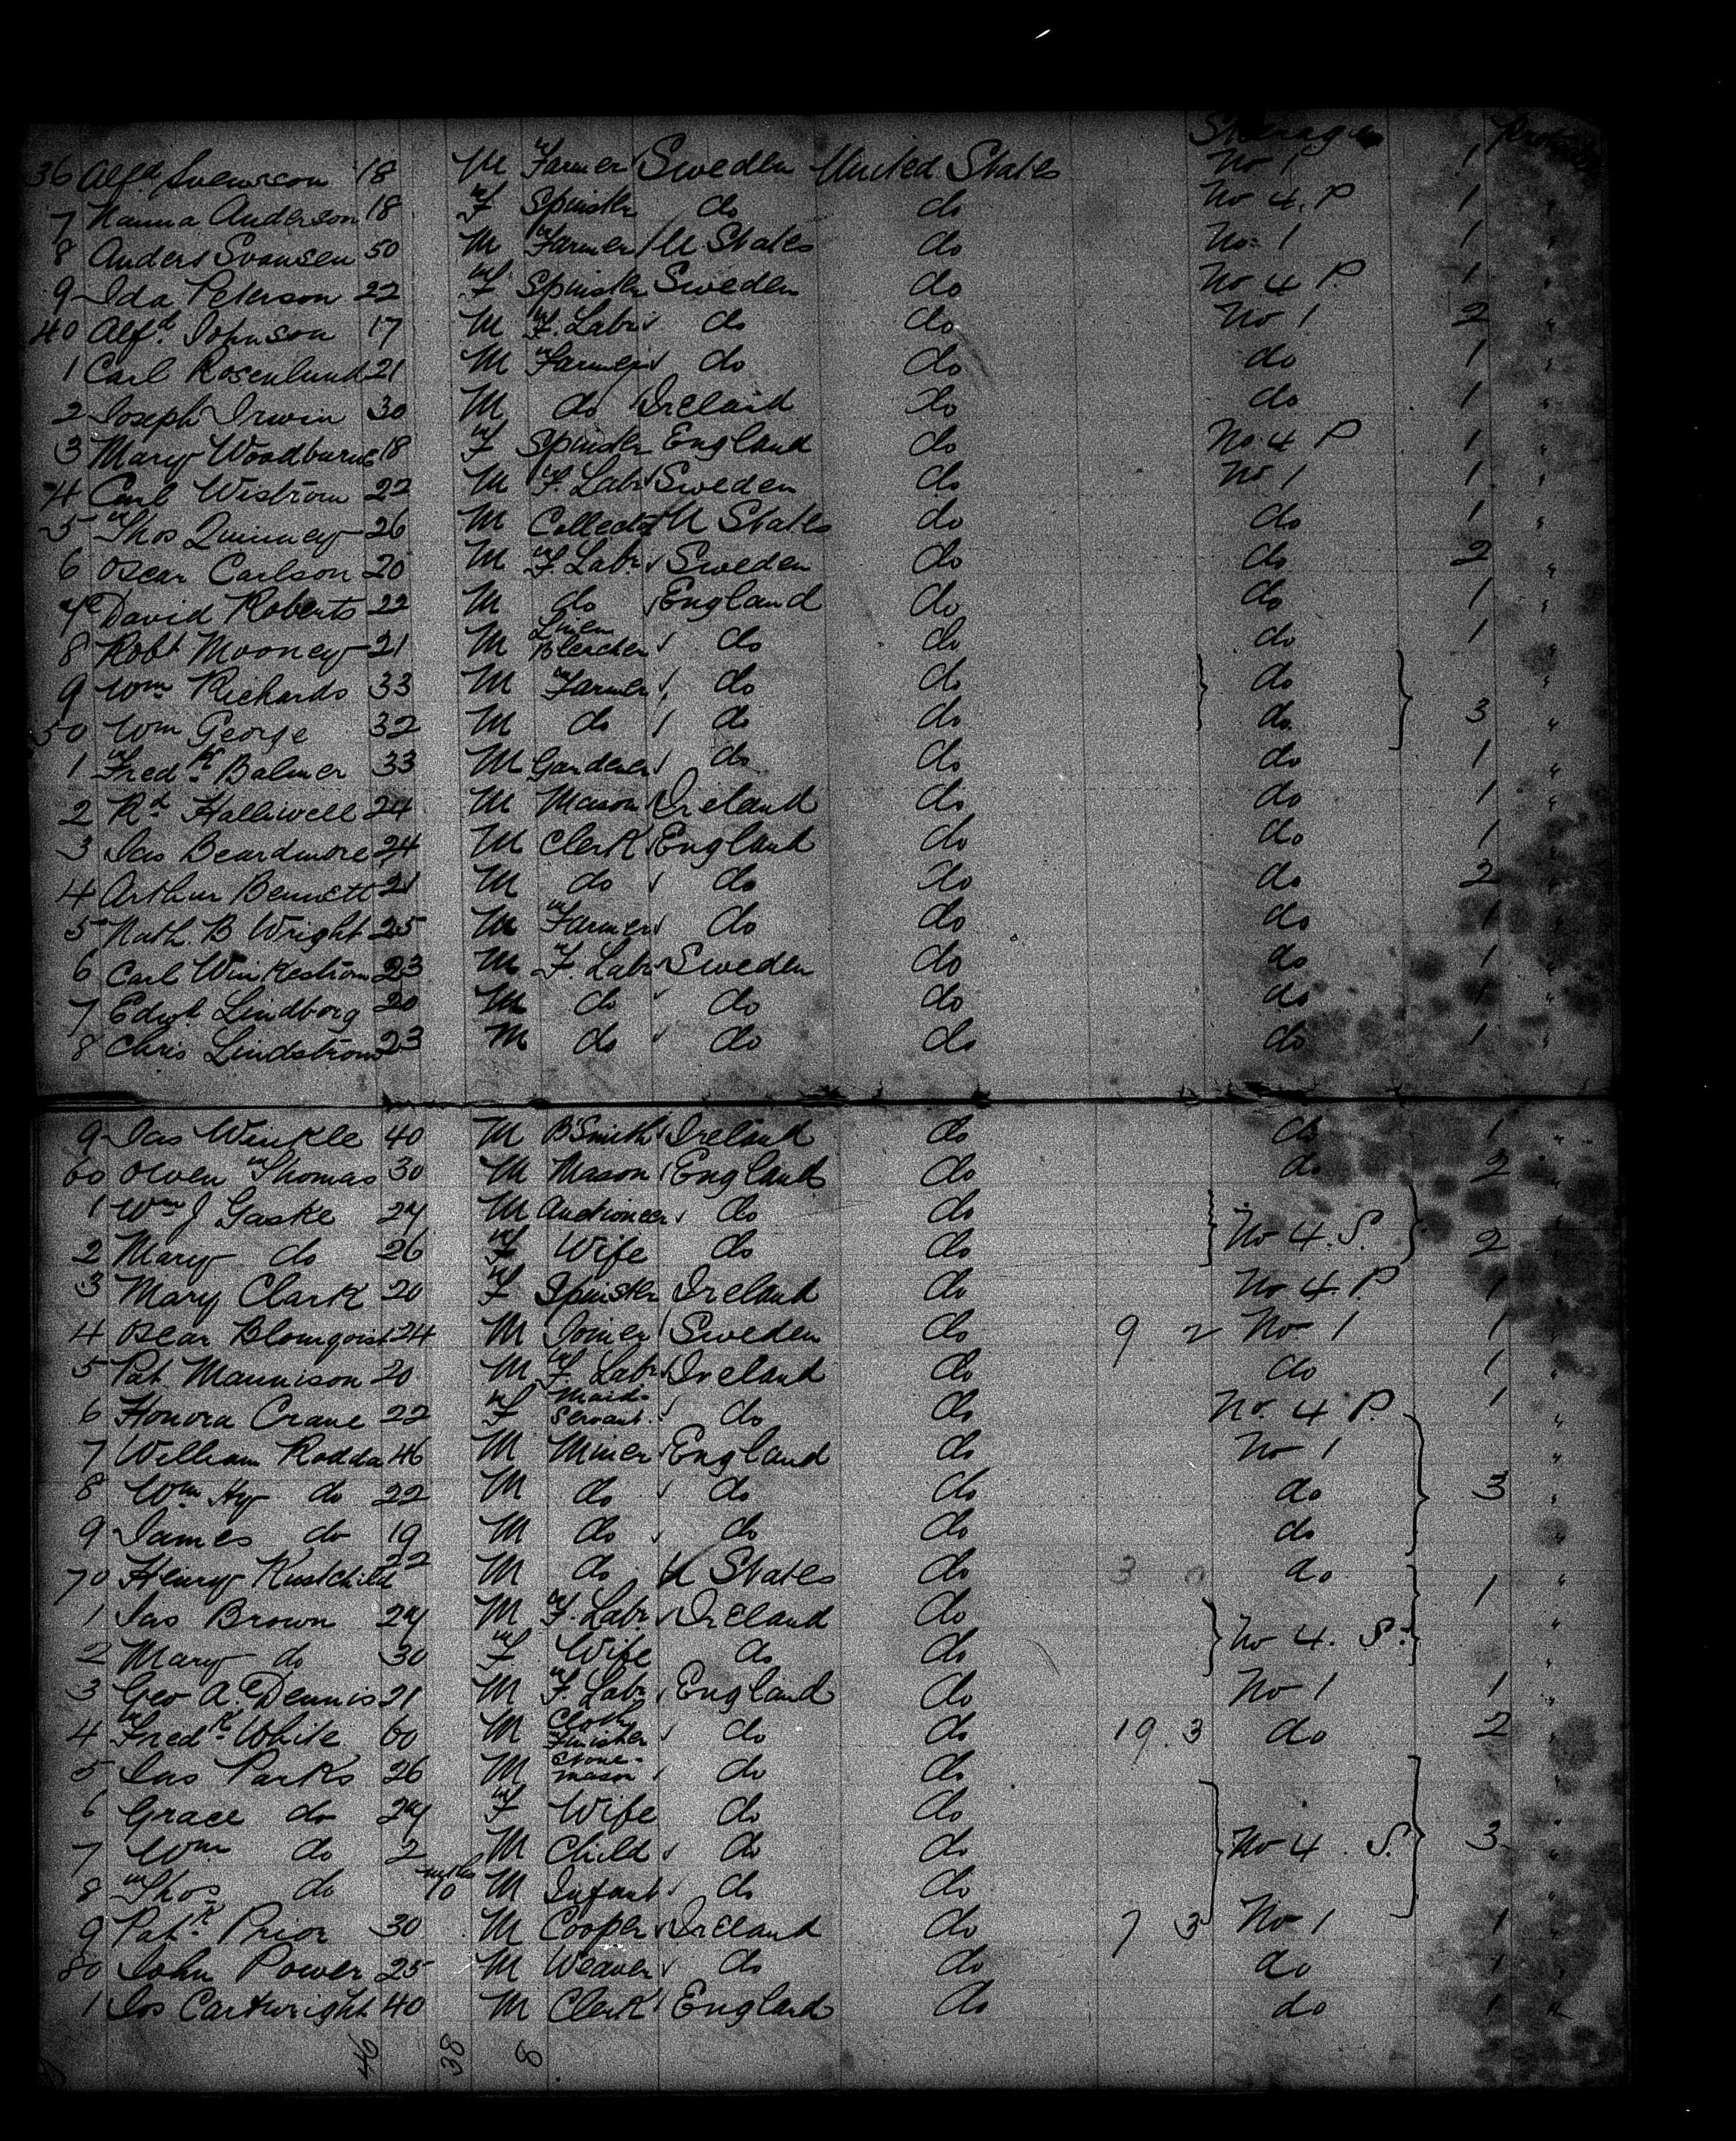 Steerage
36 Alfd Svensson 18 M Farmer Sweden United States No 1 1
7 Nanna Anderson 18 F Spinster do do No 4. P 1 "
8 Anders Svansen 50 M Farmer U States do No. 1 1 "
9 Ida Peterson 22 F Spinster Sweden do No 4 P. 1 "
40 Alfd. Johnson 17 M F. Labr do do No 1 2 "
1 Carl Rosenlund 21 M Farmer do do do 1 "
2 Joseph Irwin 30 M do Ireland do do 1 "
3 Mary Woodburne 18 F Spinster England do No. 4 P 1 "
4 Carl Wistrom 22 M F. Labr Sweden do No 1 1 "
5 Thos Quinney 26 M Collector U States do do 1 "
6 Oscar Carlson 20 M F. Labr. Sweden do do 2 "
7 David Roberts 22 M do England do do 1 "
8 Robt Mooney 21 M Linen Bleacher do do do 1
9 Wm Richards 33 M Farmer do do do "
50 Wm George 32 M do do do do 3 "
1 Fredk. Balmer 33 M Gardener do do do 1 "
2 Rd Halliwell 24 M Mason Ireland do do 1 "
3 Jas Beardmore 24 M Clerk England do do 1 "
4 Arthur Bennett 21 M do do do do 2 "
5 Nath. B Wright 25 M Farmer do do do 1 "
6 Carl Winkestrom 23 M F. Labr Sweden do do 1 "
7 Edwd Lindborg 20 M do do do do 1 "
8 Chris Lindstrom 23 M do do do do 1 "
9 Jas Winkle 40 M B'Smith Ireland do do 1 "
60 Owen Thomas 30 M Mason England do do 2 "
1 Wm J Gaske 27 M Auctioneer do do
2 Mary do 26 F Wife do do No 4. S. 2
3 Mary Clark 20 F Spinster Ireland do No 4. P. 1
4 Oscar Blomqvist 24 M Joiner Sweden do 9 2 No 1 1 "
5 Pat Mannison 20 M F. Labr Ireland do do 1 "
6 Honora Crane 22 F Maid-Servant. do do No. 4 P. 1 "
7 William Rodda 46 M Miner England do No 1 "
8 Wm Hy do 22 M do do do do 3 "
9 James do 19 M do do do do
70 Henry 22 M do U States do 3 0 do "
1 Jas Brown 27 M F. Labr. Ireland do 1 "
2 Mary do 30 F Wife do do No 4. S. "
3 Geo A. Dennis 21 M F. Labr England do No 1 1 "
4 Fredk. White 60 M Cloth Finisher do do 19. 3 do 2 "
5 Jas Parks 26 M Stone-mason do do "
6 Grace do 27 F Wife do do "
7 Wm do 2 M Child do do No 4. S. 3 "
8 Thos do mths 10 M Infant do do "
9 Patk. Prior 30 M Cooper Ireland do 7 3 No 1 1 "
80 John Power 25 M Weaver do do do 1 "
1 Jos Cartwright 40 M Clerk England do do 1 "
46 38 8